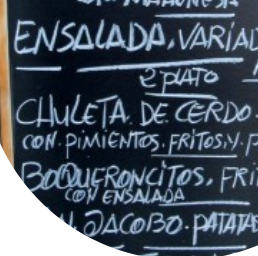 ENSALADA, VARIAD
2 PLATO
CHULETA. DE. CERDO.
CON. PIMIENTOS. FRITOS. Y. P
BOQUERONCITOS. FRI
CON ENSALADA
JACOBO. PATATA